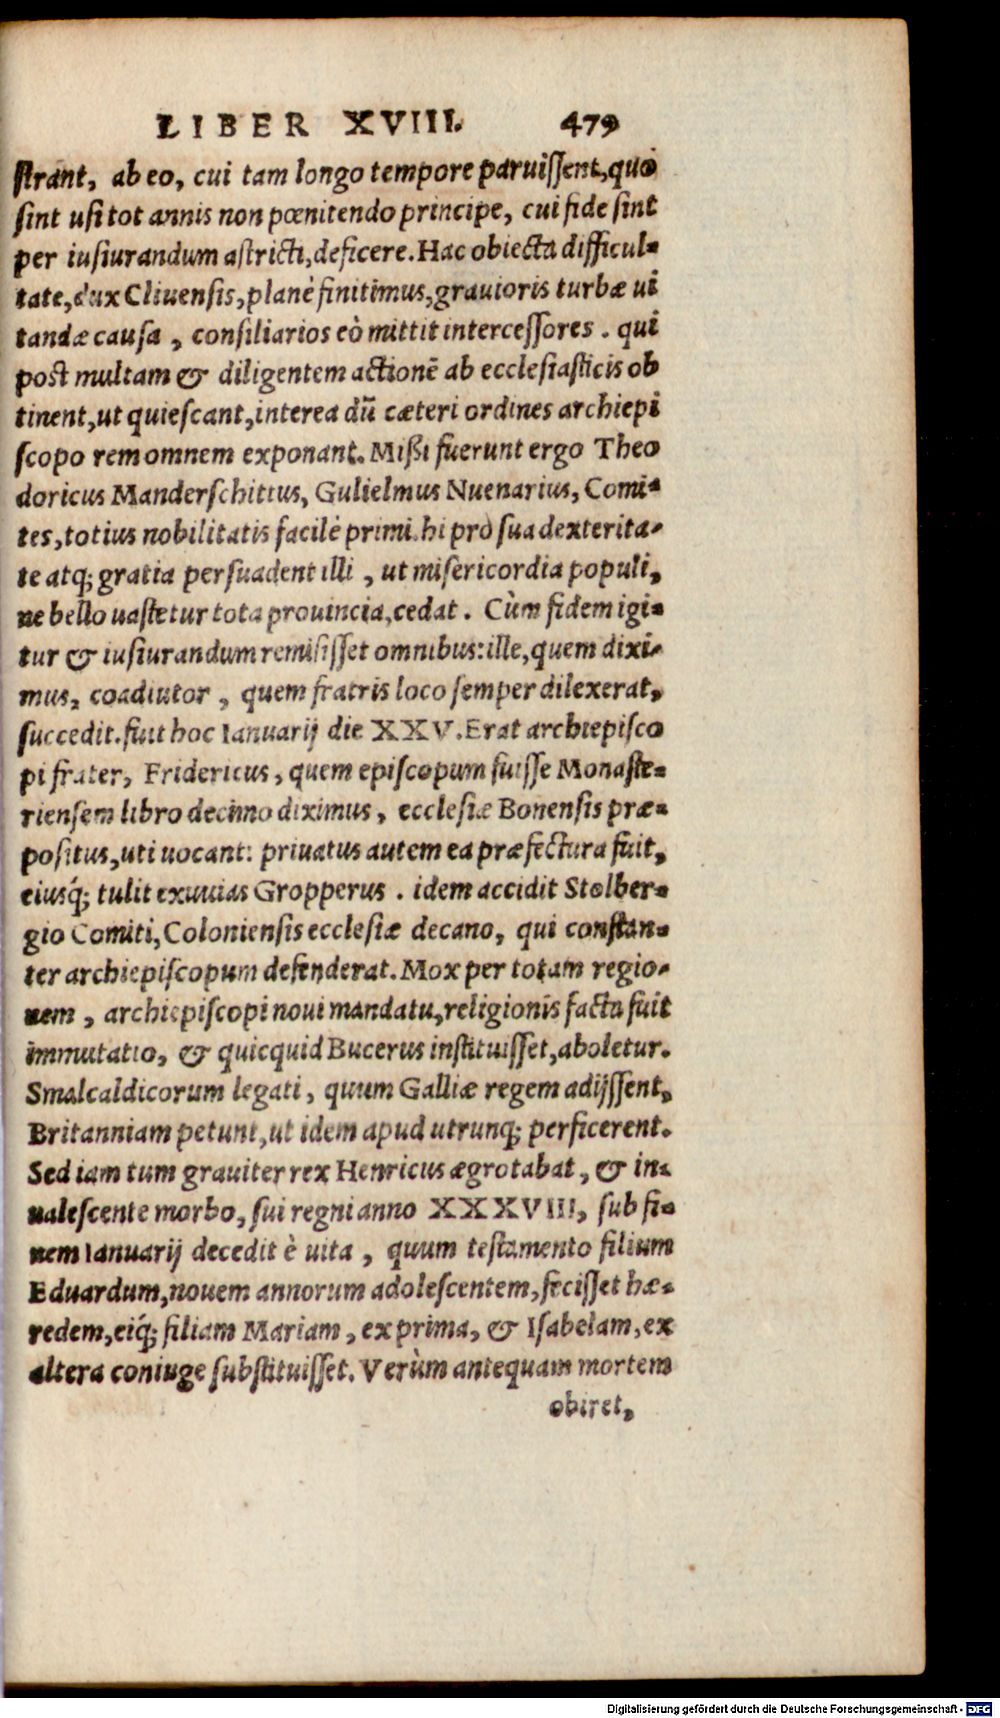 LIBER XVIII. 479
ſtrant, ab eo, cui tam longo tempore paruiſſent, quo
ſint uſi tot annis non pœnitendo principe, cui fide ſint
per iuſiurandum aſtricti, deficere. Hac obiecta difficul-
tate, dux Cliuenſis, planè finitimus, grauioris turbæ ui
tandæ cauſa, conſiliarios eò mittit interceſſores. qui
poſt multam & diligentem actionē ab eccleſiaſticis ob
tinent, ut quieſcant, interea dū cæteri ordines archiepi
ſcopo rem omnem exponant. Mißi fuerunt ergo Theo
doricus Manderſchittus, Gulielmus Nuenarius, Comi-
tes, totius nobilitatis facilè primi. hi pro sua dexterita-
te atq; gratia perſuadent illi, ut miſericordia populi,
ne bello uaſtetur tota prouincia, cedat. Cùm fidem igi-
tur & iuſiurandum remiſiſſet omnibus: ille, quem dixi-
mus, coadiutor, quem fratris loco ſemper dilexerat,
ſuccedit. fuit hoc Ianuarij die XXV. Erat archiepiſco
pi frater, Fridericus, quem epiſcopum fuiſſe Monaſte-
rienſem libro decimo diximus, eccleſiæ Bonenſis præ-
poſitus, uti uocant: priuatus autem ea præfectura fuit,
eiusq́; tulit exuuias Gropperus. idem accidit Stolber-
gio Comiti, Colonienſis eccleſiæ decano, qui conſtan-
ter archiepiſcopum defenderat. Mox per totam regio-
nem, archiepiſcopi noui mandatu, religionis facta fuit
immutatio, & quicquid Bucerus inſtituiſſet, aboletur.
Smalcaldicorum legati, quum Galliæ regem adijſſent,
Britanniam petunt, ut idem apud utrunq; perficerent.
Sed iam tum grauiter rex Henricus ægrotabat, & in-
ualeſcente morbo, ſui regni anno XXXVIII, ſub fi-
nem Ianuarij decedit è uita, quum teſtamento filium
Eduardum, nouem annorum adoleſcentem, feciſſet hæ-
redem, eiq́; filiam Mariam, ex prima, & Iſabelam, ex
altera coniuge ſubſtituiſſet. Verùm antequam mortem
obiret,
Digitalisierung gefördert durch die Deutsche Forschungsgemeinschaft - DFG